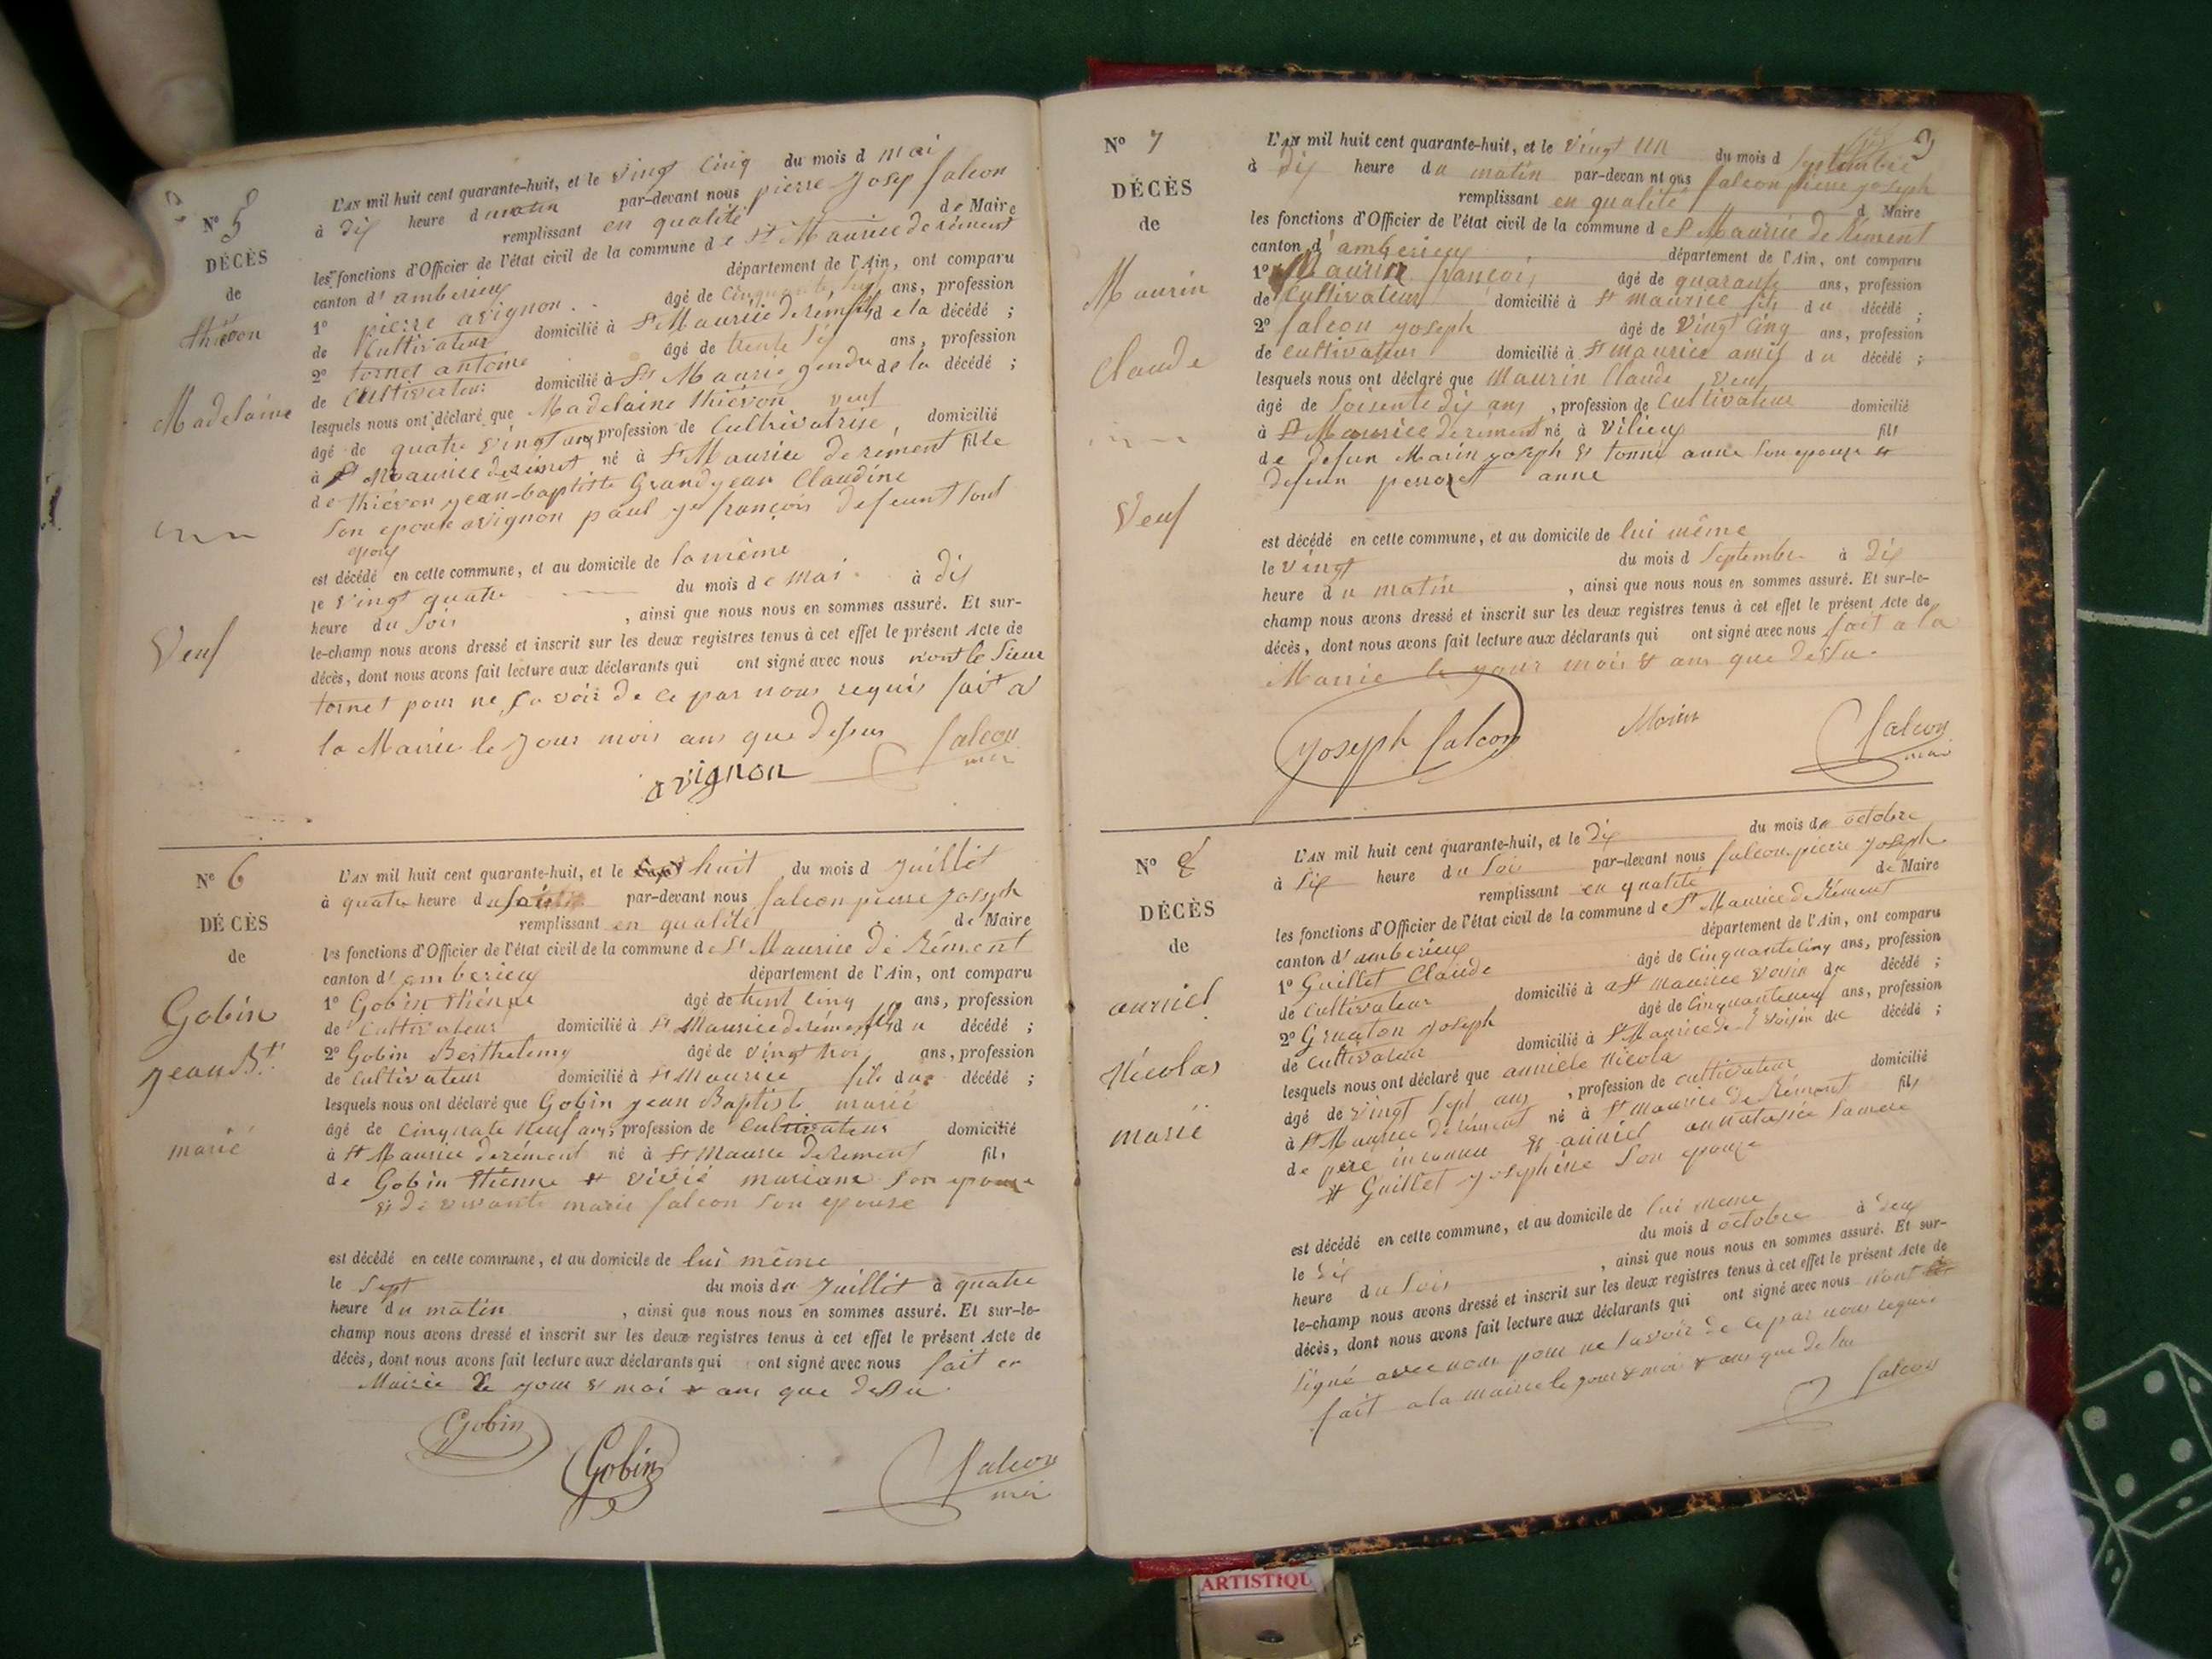 Nº 5
DÉCÈS
de
thiévon
Madelaine
Veuf
L'AN mil huit cent quarante-huit, et le vingt cinq du mois d mai
à dix heure d u matin par-devant nous pierre josep falcon
remplissant en qualité de Maire
les fonctions d'Officier de l'état civil de la commune d e St Maurice de rément
canton d' amberieux département de l'Ain, ont comparu
1º pierre avignon. âgé de Cinquante ans, profession
de Cultivateur domicilié à St Maurice de rément fils d e la décédé ;
2º tornet antoine âgé de trente six ans, profession
de Cultivateur domicilié à St Maurice gendre de la décédé ;
lesquels nous ont déclaré que Madelaine thiévon veuf
âgé de quatre vingt ans profession de Cultivatrise, domicilié
à St Maurice de rément né à St Maurice de rément fille
de thiévon jean-baptiste Grandjean Claudine
son epouse avignon paul françois defeunt sont
epoux
est décédé en cette commune, et au domicile de la même
le vingt quatre du mois d e mai. à dix
heure du soir , ainsi que nous nous en sommes assuré. Et sur-
le-champ nous avons dressé et inscrit sur les deux registres tenus à cet effet le présent Acte de
décès, dont nous avons fait lecture aux déclarants qui ont signé avec nous non le Sieur
tornet pour ne savoir de ce par nous requis fait a
la Mairie le jour mois ans que dessus
avignon falcon
Nº 6
DÉCÈS
de
Gobin
jean Bte
marié
L'AN mil huit cent quarante-huit, et le huit du mois d juillet
à quatre heure d u par-devant nous falcon pierre joseph
remplissant en qualité de Maire
les fonctions d'Officier de l'état civil de la commune d e St Maurice de Rément
canton d' amberieux département de l'Ain, ont comparu
1º Gobin Etienne âgé de trent cinq ans, profession
de Cultivateur domicilié à St Maurice de rément fils d u décédé ;
2º Gobin Berthelemy âgé de vingt trois ans, profession
de Cultivateur domicilié à St Maurice fils du décédé ;
lesquels nous ont déclaré que Gobin jean Baptiste marié
âgé de Cinquate neuf ans, profession de Cultivateur domicilié
à St Maurice de rément né à St Maurice de Rément fils
de Gobin Etienne et mariane son epouse
et de vivante marie falcon son epouse
est décédé en cette commune, et au domicile de lui même
le Sept du mois du juillet à quatre
heure du matin , ainsi que nous nous en sommes assuré. Et sur-le-
champ nous avons dressé et inscrit sur les deux registres tenus à cet effet le présent Acte de
décès, dont nous avons fait lecture aux déclarants qui ont signé avec nous fait en
Mairie le jour et moi et ans que dessu
Gobin Gobin falcon
Nº 7
DÉCÈS
de
Maurin
Claude
Veuf
3
L'AN mil huit cent quarante-huit, et le vingt un du mois d septembre
à dix heure du matin par-devant nous falcon pierre joseph
remplissant en qualité d Maire
les fonctions d'Officier de l'état civil de la commune d e St Maurice de Rément
canton d' amberieux département de l'Ain, ont comparu
1º Maurin françois âgé de quarante ans, profession
de Cultivateur domicilié à St maurice fils du décédé ;
2º falcon joseph âgé de vingt cinq ans, profession
de cultivateur domicilié à St maurice amis du décédé ;
lesquels nous ont déclaré que Maurin Claude veuf
âgé de Soisente dix ans , profession de Cultivateur domicilié
à St Maurice de rément né à Vilieux fils
de defun Marin joseph et tonné anne son epouse et
defeun anne
est décédé en cette commune, et au domicile de lui même
le vingt du mois d Septembre à dix
heure du matin , ainsi que nous nous en sommes assuré. Et sur-le-
champ nous avons dressé et inscrit sur les deux registres tenus à cet effet le présent Acte de
décès, dont nous avons fait lecture aux déclarants qui ont signé avec nous fait a la
Mairie le jour mois et ans que dessu.
joseph falcon Morin falcon
Nº 8
DÉCÈS
de
anniel
Nicolas
marié
L'AN mil huit cent quarante-huit, et le dix du mois d octobre
à Six heure du Soir par-devant nous falcon pierre joseph
remplissant en qualité de Maire
les fonctions d'Officier de l'état civil de la commune d e St Maurice de Rément
canton d' amberieux département de l'Ain, ont comparu
1º Guillet Claude âgé de Cinquante cinq ans, profession
de Cultivateur domicilié à a St maurice voisin du décédé ;
2º joseph âgé de Cinquante ans, profession
de Cultivateur domicilié à St Maurice de R voisin du décédé ;
lesquels nous ont déclaré que anniele Nicola
âgé de vingt Sept ans , profession de cultivateur domicilié
à St Maurice de rément né à St maurice de Rément fils
de père inconnu et anniel annatasie Samere
et Guillet josephine Son epouze
est décédé en cette commune, et au domicile de lui meme
le dix du mois d octobre à deux
heure du Soir , ainsi que nous nous en sommes assuré. Et sur-
le-champ nous avons dressé et inscrit sur les deux registres tenus à cet effet le présent Acte de
décès, dont nous avons fait lecture aux déclarants qui ont signé avec nous n'ont
Signé avec nous pour ne savoir de ce par nous requis
fait a la mairie le jour et moi et ans que dessu
falcon
ARTISTIQU